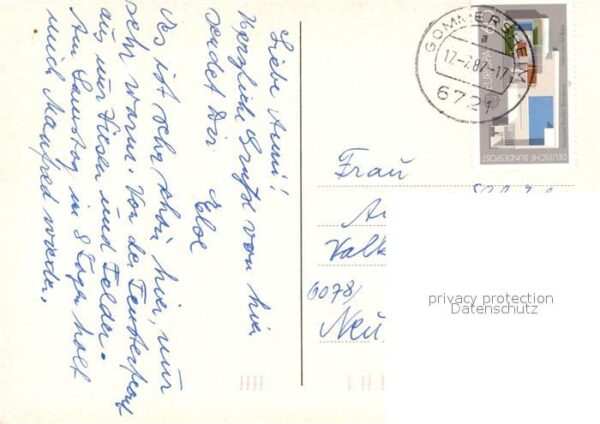 Liebe Anni!
Herzliche Grüße von hier
sendet Dir Elve
Es ist sehr schön hier, nur
sehr warm. Von der Fensterfront
aus nur Wiesen und Felder.
Am Samstag in 8 Tagen holt
mich Manfred wieder.
GOMMERSHEIM
17.-7.87-17
6721
DEUTSCHE BUNDESPOST
Frau
Valk
6078/
Neu
privacy protection
Datenschutz